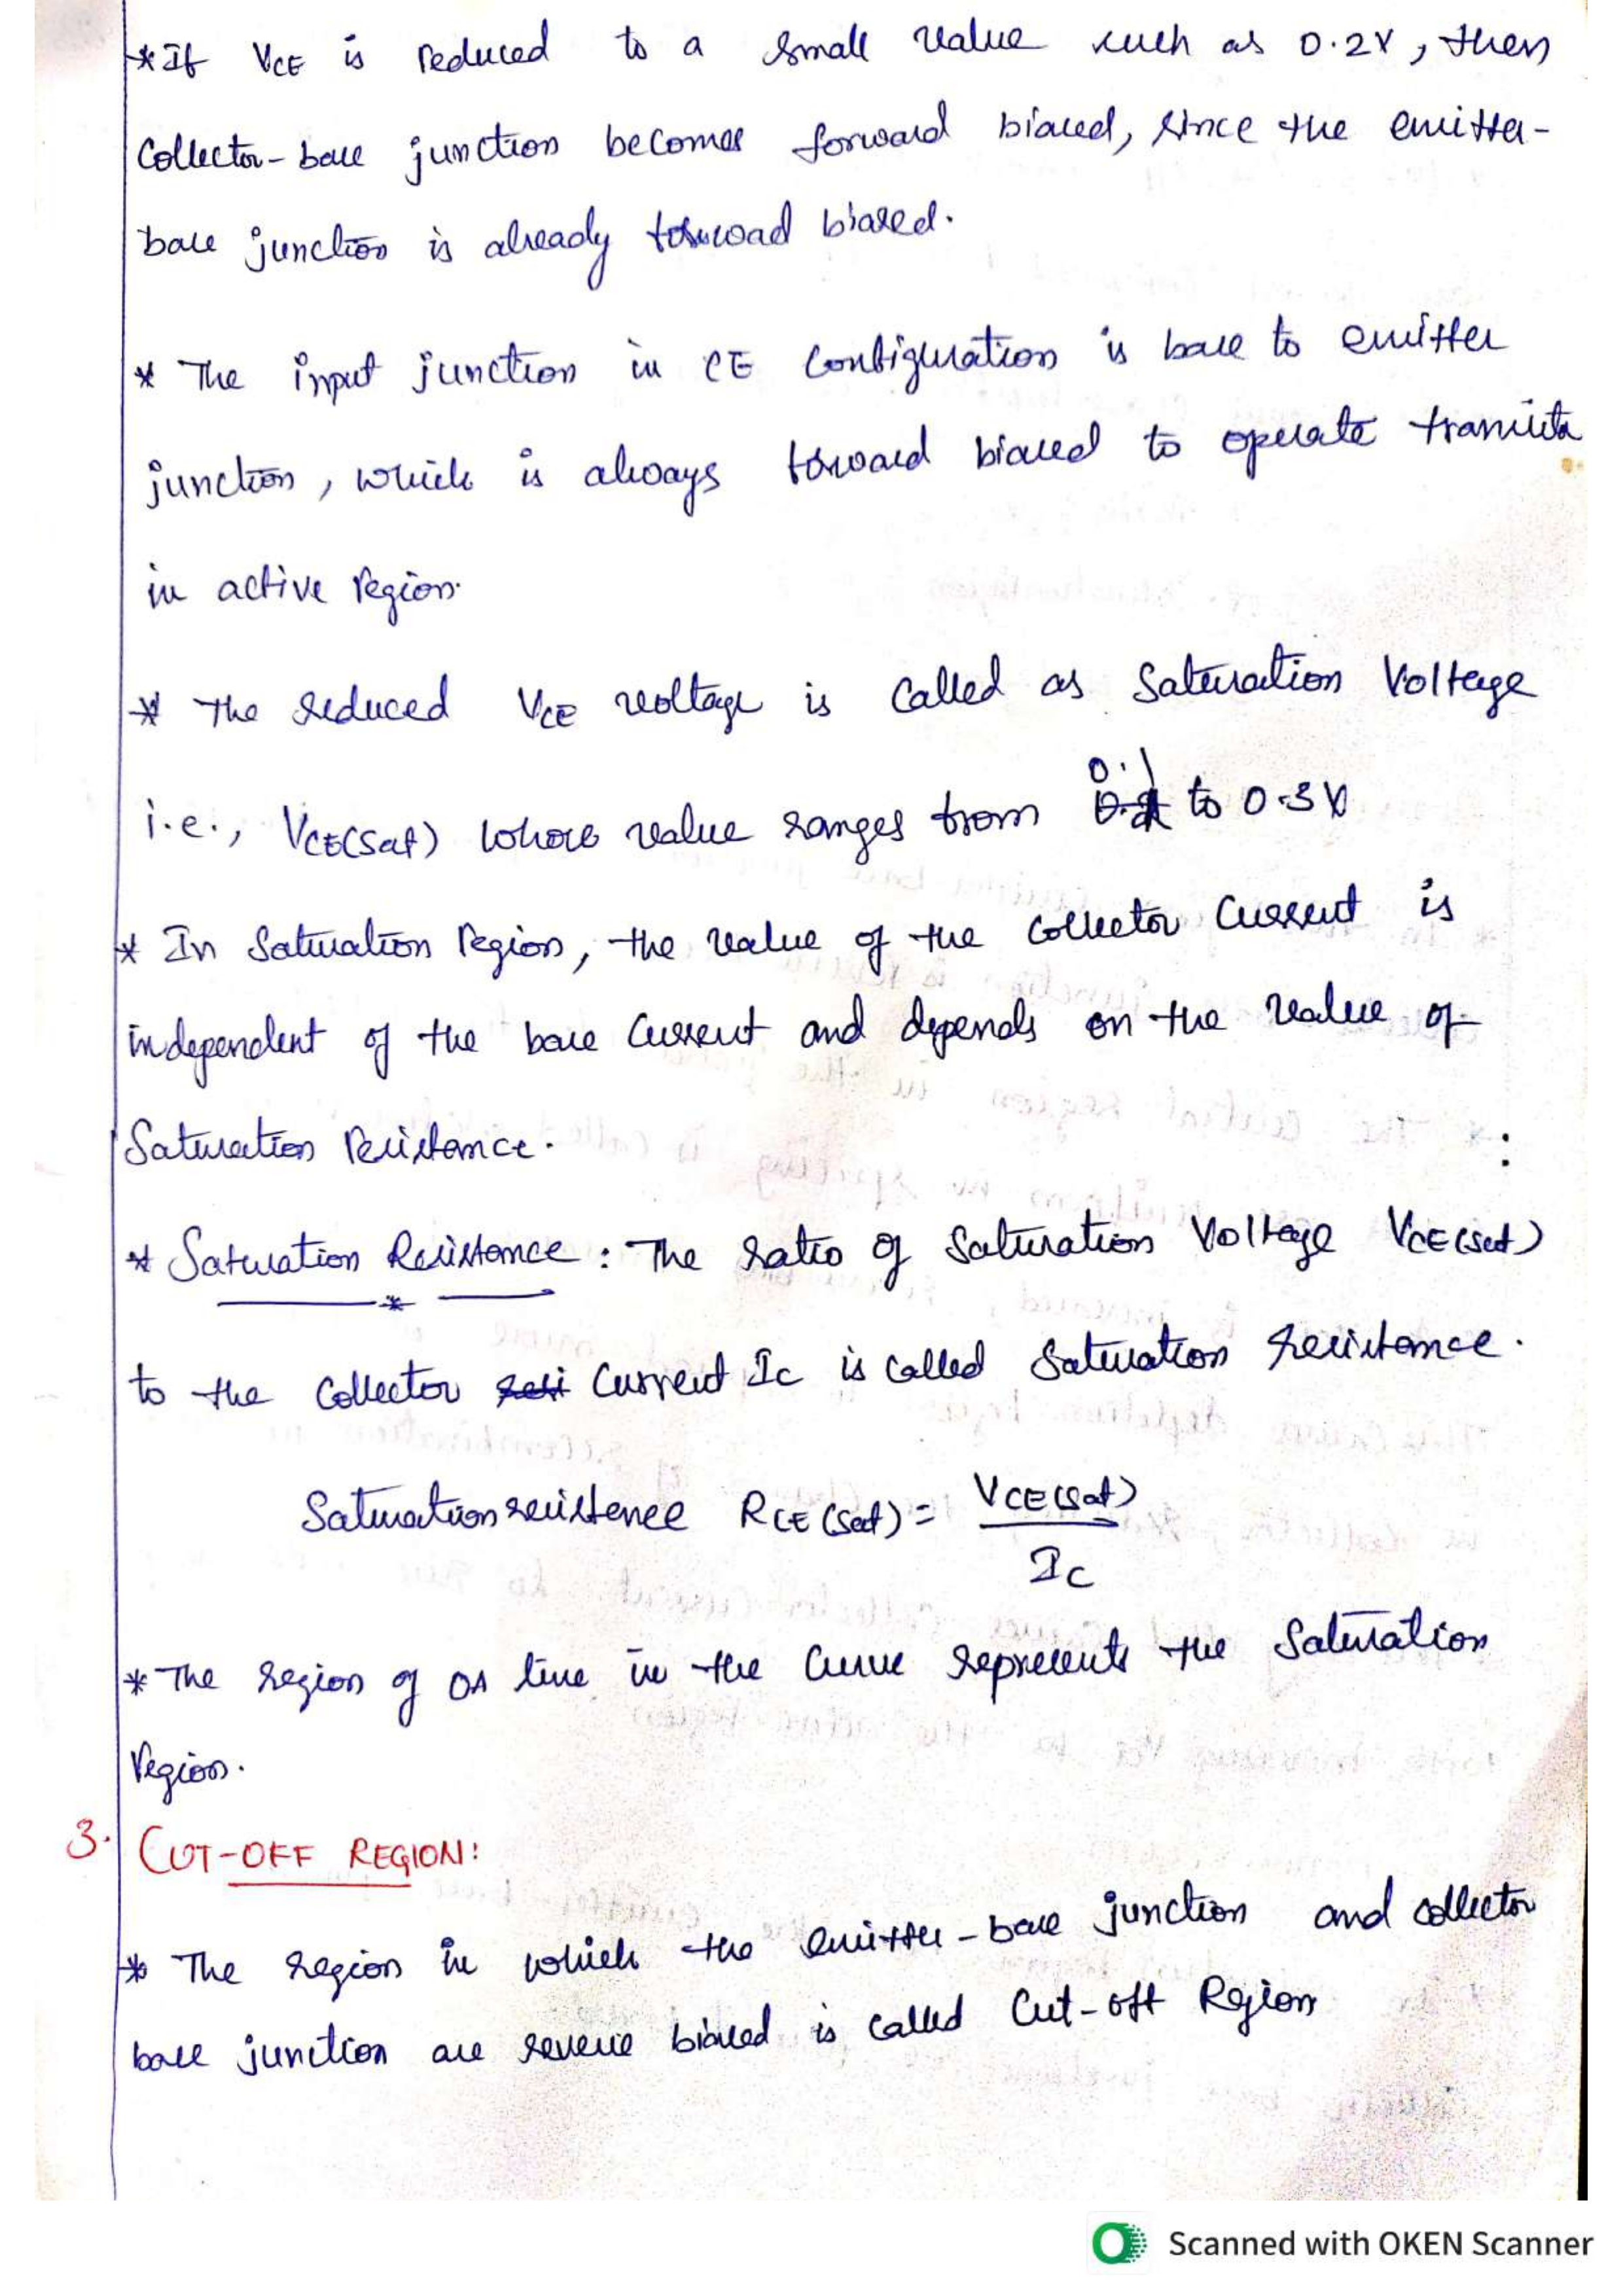 * If VCE is reduced to a small value such as 0.2V, then
Collector-base junction becomes forward biased, since the emitter-
base junction is already forward biased.
* The input junction in CE Configuration is base to emitter
junction, which is always forward biased to operate transistor
in active region.
* The reduced VCE voltage is called as Saturation Voltage
i.e., VCE(sat) whose value ranges from 0.1 to 0.3V
* In Saturation region, the value of the collector Current is
independent of the base Current and depends on the value of
Saturation Resistance.
* Saturation Resistance: The ratio of Saturation Voltage VCE(sat)
to the Collector Current Ic is called Saturation resistance.
Saturation resistence RCE(sat) = VCE(sat)
Ic
* The region of OA line in the Curve represents the Saturation
Region.
3. CUT-OFF REGION:
* The region in which the emitter-base junction and collector
base junction are reverse biased is called Cut-off Region
Scanned with OKEN Scanner